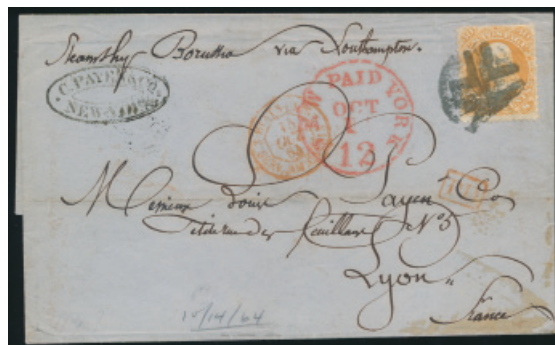 Steamship Borussia via Southampton.
C. PAYEN & CO.
NEW-YORK
NEW PAID YORK
OCT
12
Louis Payen & Co
Petite rue des Feuillans Nº 5
Lyon
France
10/14/64